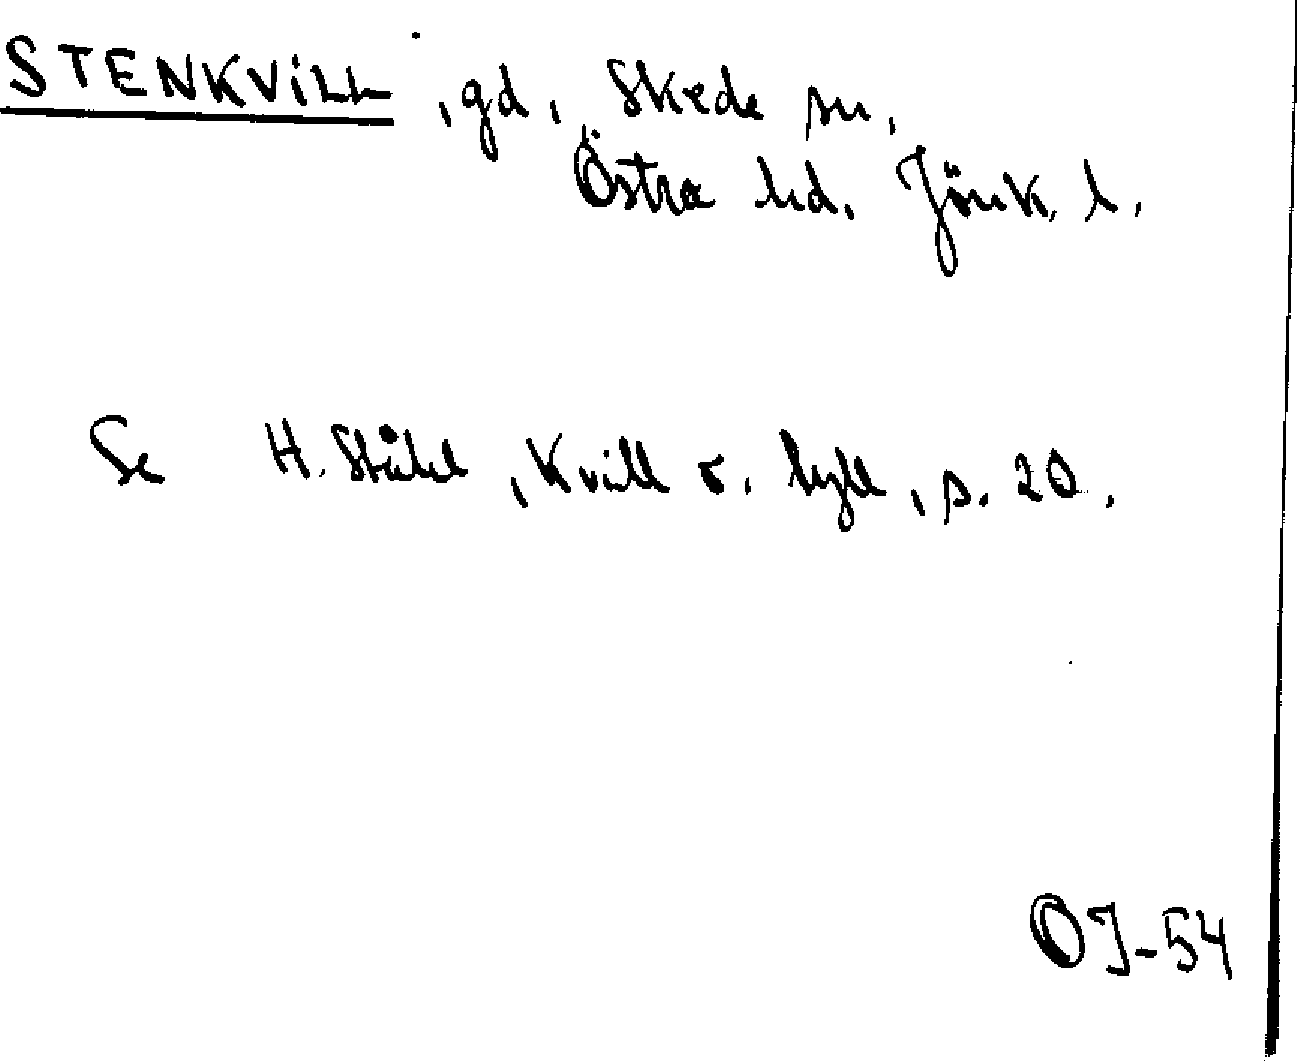 STENKVILL, gd, Skede sn,
Östra hd. Jönk. l.
Se H. Ståhl, Kvill o. tyll, s. 20.
OJ-54